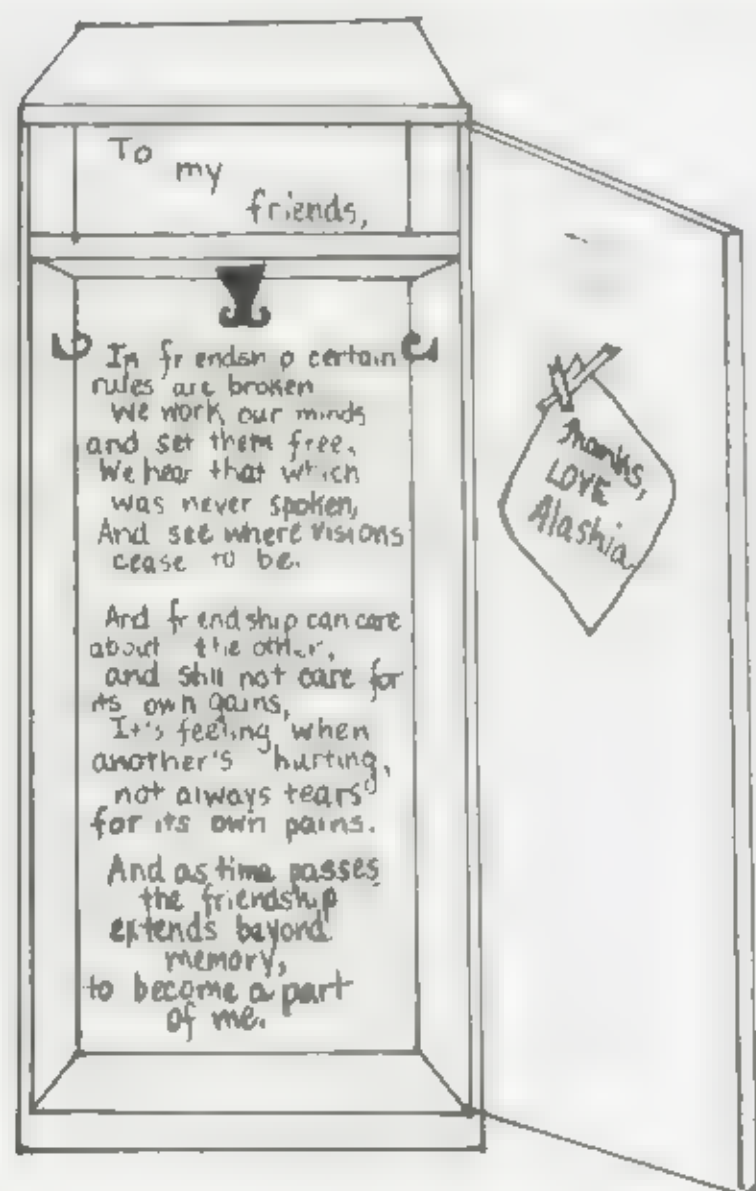 To
my
friends,
In friendship certain
rules are broken
We work our minds
and set them free.
We hear that which
was never spoken,
And see where visions
cease to be.
And friendship can care
about the other,
and still not care for
its own gains,
It's feeling when
another's hurting,
not always tears
for its own pains.
And as time passes
the friendship
extends beyond
memory,
to become a part
of me.
Thanks,
LOVE
Alashia